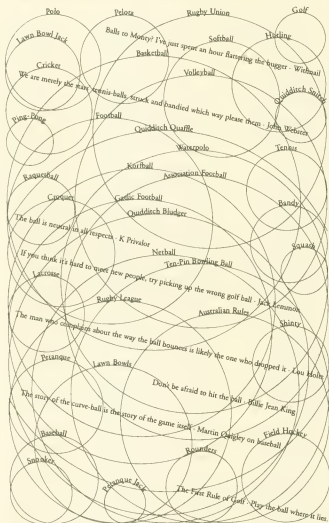 Polo
Pelota
Rugby Union
Golf
Lawn Bowl Jack
Balls to Monty? I've just spent an hour flattering the bugger · Withnail
Softball
Hurling
Basketball
Cricket
Volleyball
We are merely the stars tennis-balls, struck and bandied which way please them · John Webster
Quidditch Snitch
Ping-Pong
Football
Quidditch Quaffle
Waterpolo
Tennis
Korfball
Racquetball
Association Football
Croquet
Gaelic Football
Bandy
Quidditch Bludger
The ball is neutral in all respects · K Privalov
Netball
Squash
If you think it's hard to meet new people, try picking up the wrong golf ball · Jack Lemmon
Ten-Pin Bowling Ball
Lacrosse
Rugby League
Australian Rules
Shinty
The man who complains about the way the ball bounces is likely the one who dropped it · Lou Holtz
Petanque
Lawn Bowls
Don't be afraid to hit the ball · Billie Jean King
The story of the curve-ball is the story of the game itself · Martin Quigley on baseball
Baseball
Field Hockey
Rounders
Snooker
Petanque Jack
The First Rule of Golf · Play the ball where it lies